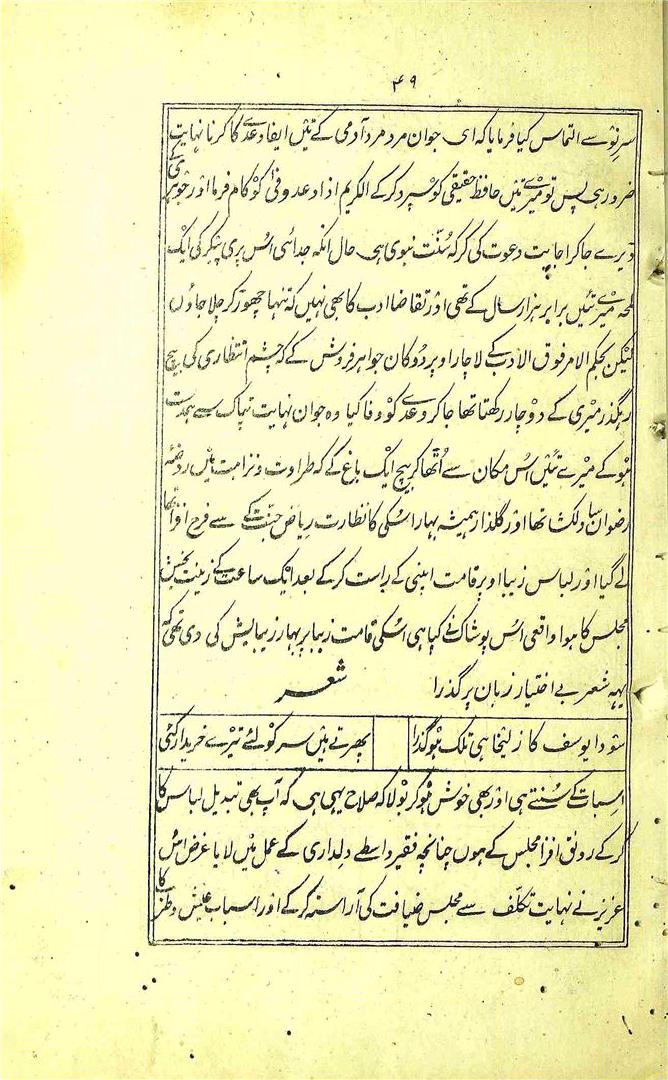 ۴۹
سرِ نو سے التماس کیا فرمایا کہ ای جوان مرد مرد آدمی کے تئیں ایفا وعدے کا کرنا نہایت
ضرور ہی پس تو میرے تئیں حافظ حقیقی کو سپرد کر کے الکریم اذا وعد وفیٰ کو کام فرما اور جوہری کے
ڈیرے جا کر اجابت دعوت کی کر کہ سُنّت نبوی ہی حال آنکہ جدائی اُس پری پیکر کی ایک
لمحہ میرے تئیں برابر ہزار سال کے تھی اور تقاضا ادب کا بھی نہیں کہ تنہا چھوڑ کر چلا جاؤں
لیکن بحکم الامر فوق الادب کے لاچار اوپر دوکان جواہر فروش کے کہ چشم انتظاری کی بیچ
رہگذر میری کے دوچار رکھتا تھا جا کر وعدے کو وفا کیا وہ جوان نہایت تپاک سے بجدت
ہو کے میرے تئیں اُس مکان سے اُٹھا کر بیچ ایک باغ کے کہ طراوت و نزاہت میں روضہ
رضوان سا دلکشا تھا اور گلذار ہمیشہ بہار اُسکی کا نظارت ریاض جنّت کے سے فرح افزا تھا
لے گیا اور لباس زیبا اوپر قامت اپنی کے راست کر کے بعد ایک ساعت کے زینت بخش
مجلس کا ہوا واقعی اُس پوشاک نے کیا ہی اُسکی قامت زیبا پر بہار زیبایش کی دی تھی کہ
یہہ شعر بے اختیار زبان پر گذرا شعر
سودا یوسف کا زلیخا ہی تلک ہو گذرا پھرتے ہیں سر کو لئے تیرے خریدار کئی
اِسبات کے سُنتے ہی اور بھی خوش ہو کر بولا کہ صلاح یہی ہی کہ آپ بھی تبدیل لباس کا
کر کے رونق افزا مجلس کے ہوں چنانچہ فقیر واسطے دلداری کے عمل میں لایا غرض اُس
عزیز نے نہایت تکلّف سے مجلس ضیافت کی آراستہ کر کے اور اسباب عیش و طرب کا